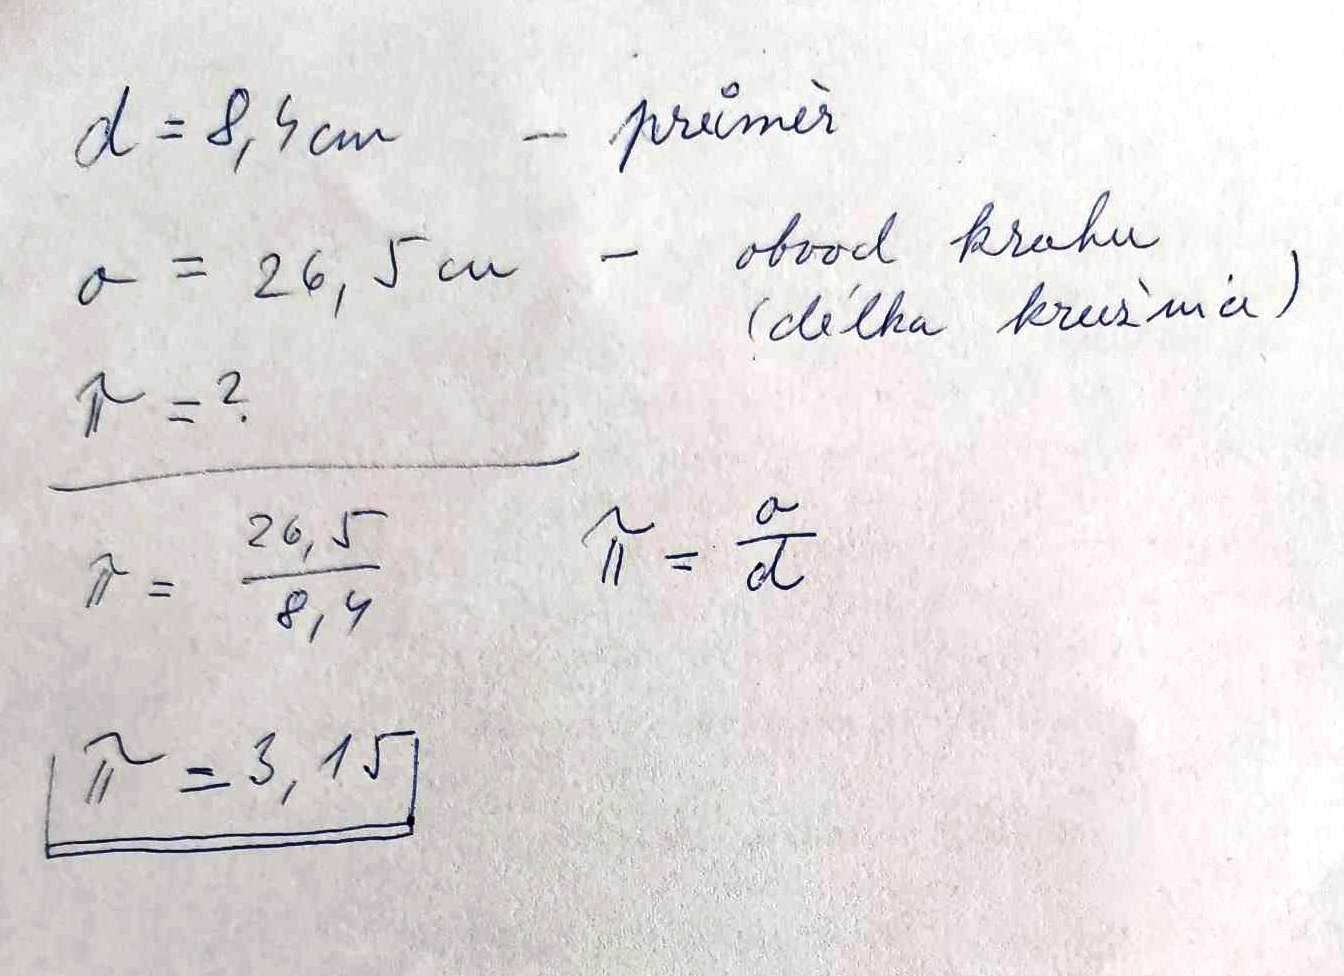 d = 8,4cm - průměr
o = 26,5cm - obvod kruhu
(délka kružnice)
π = ?
π = 26,5/8,4 π = o/d
π = 3,15